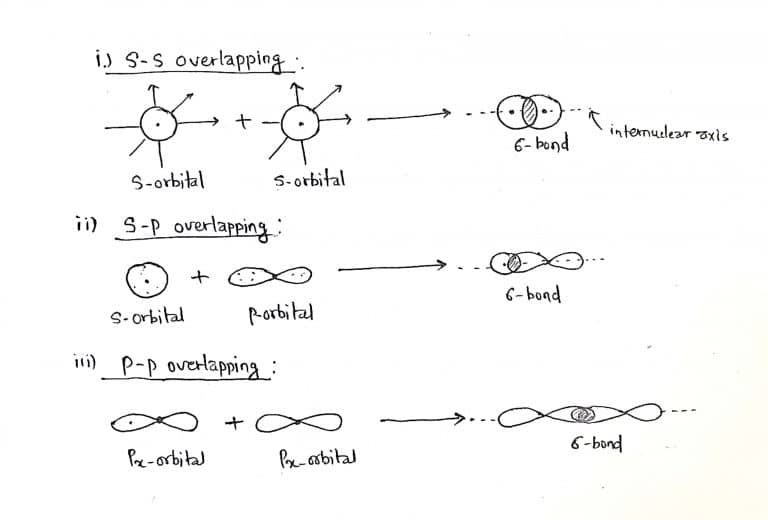 i.) S-S overlapping :
+
6-bond
internuclear axis
S-orbital
S-orbital
ii) S-P overlapping :
+
6-bond
S-orbital
P-orbital
iii) P-P overlapping :
+
6-bond
Px-orbital
Px-orbital